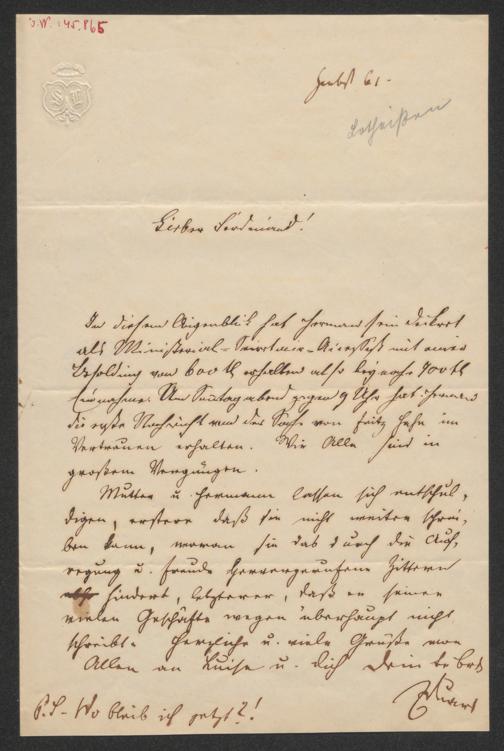 J.N. 145.865
Herbst 61.
Lotheißen
Lieber Ferdinand!
In diesem Augenblick hat Herman sein Dekret
als Ministerial-Secretair- mit einer
Besoldung von 600 fl erhalten also 900 fl
Einnahme. Um Sonntag abend gegen 9 Uhr hat Herman
die erste Nachricht von der Sache von Fritz Hahn im
Vertrauen erhalten. Wir Alle sind in
großem Vergnügen.
Mutter u. Hermann lassen sich entschul-
digen, erstere daß sie nicht weiter schrei-
ben kann, woran sie das durch die Auf-
regung u. Freude hervorgerufene Zittern
hindert, letzterer, daß er seiner
vielen Geschäfte wegen überhaupt nicht
schreibt. Herzliche u. viele Grüße von
Allen an Luise u. Dich Dein
Eduard
P.S. Wo bleib ich jetzt?!